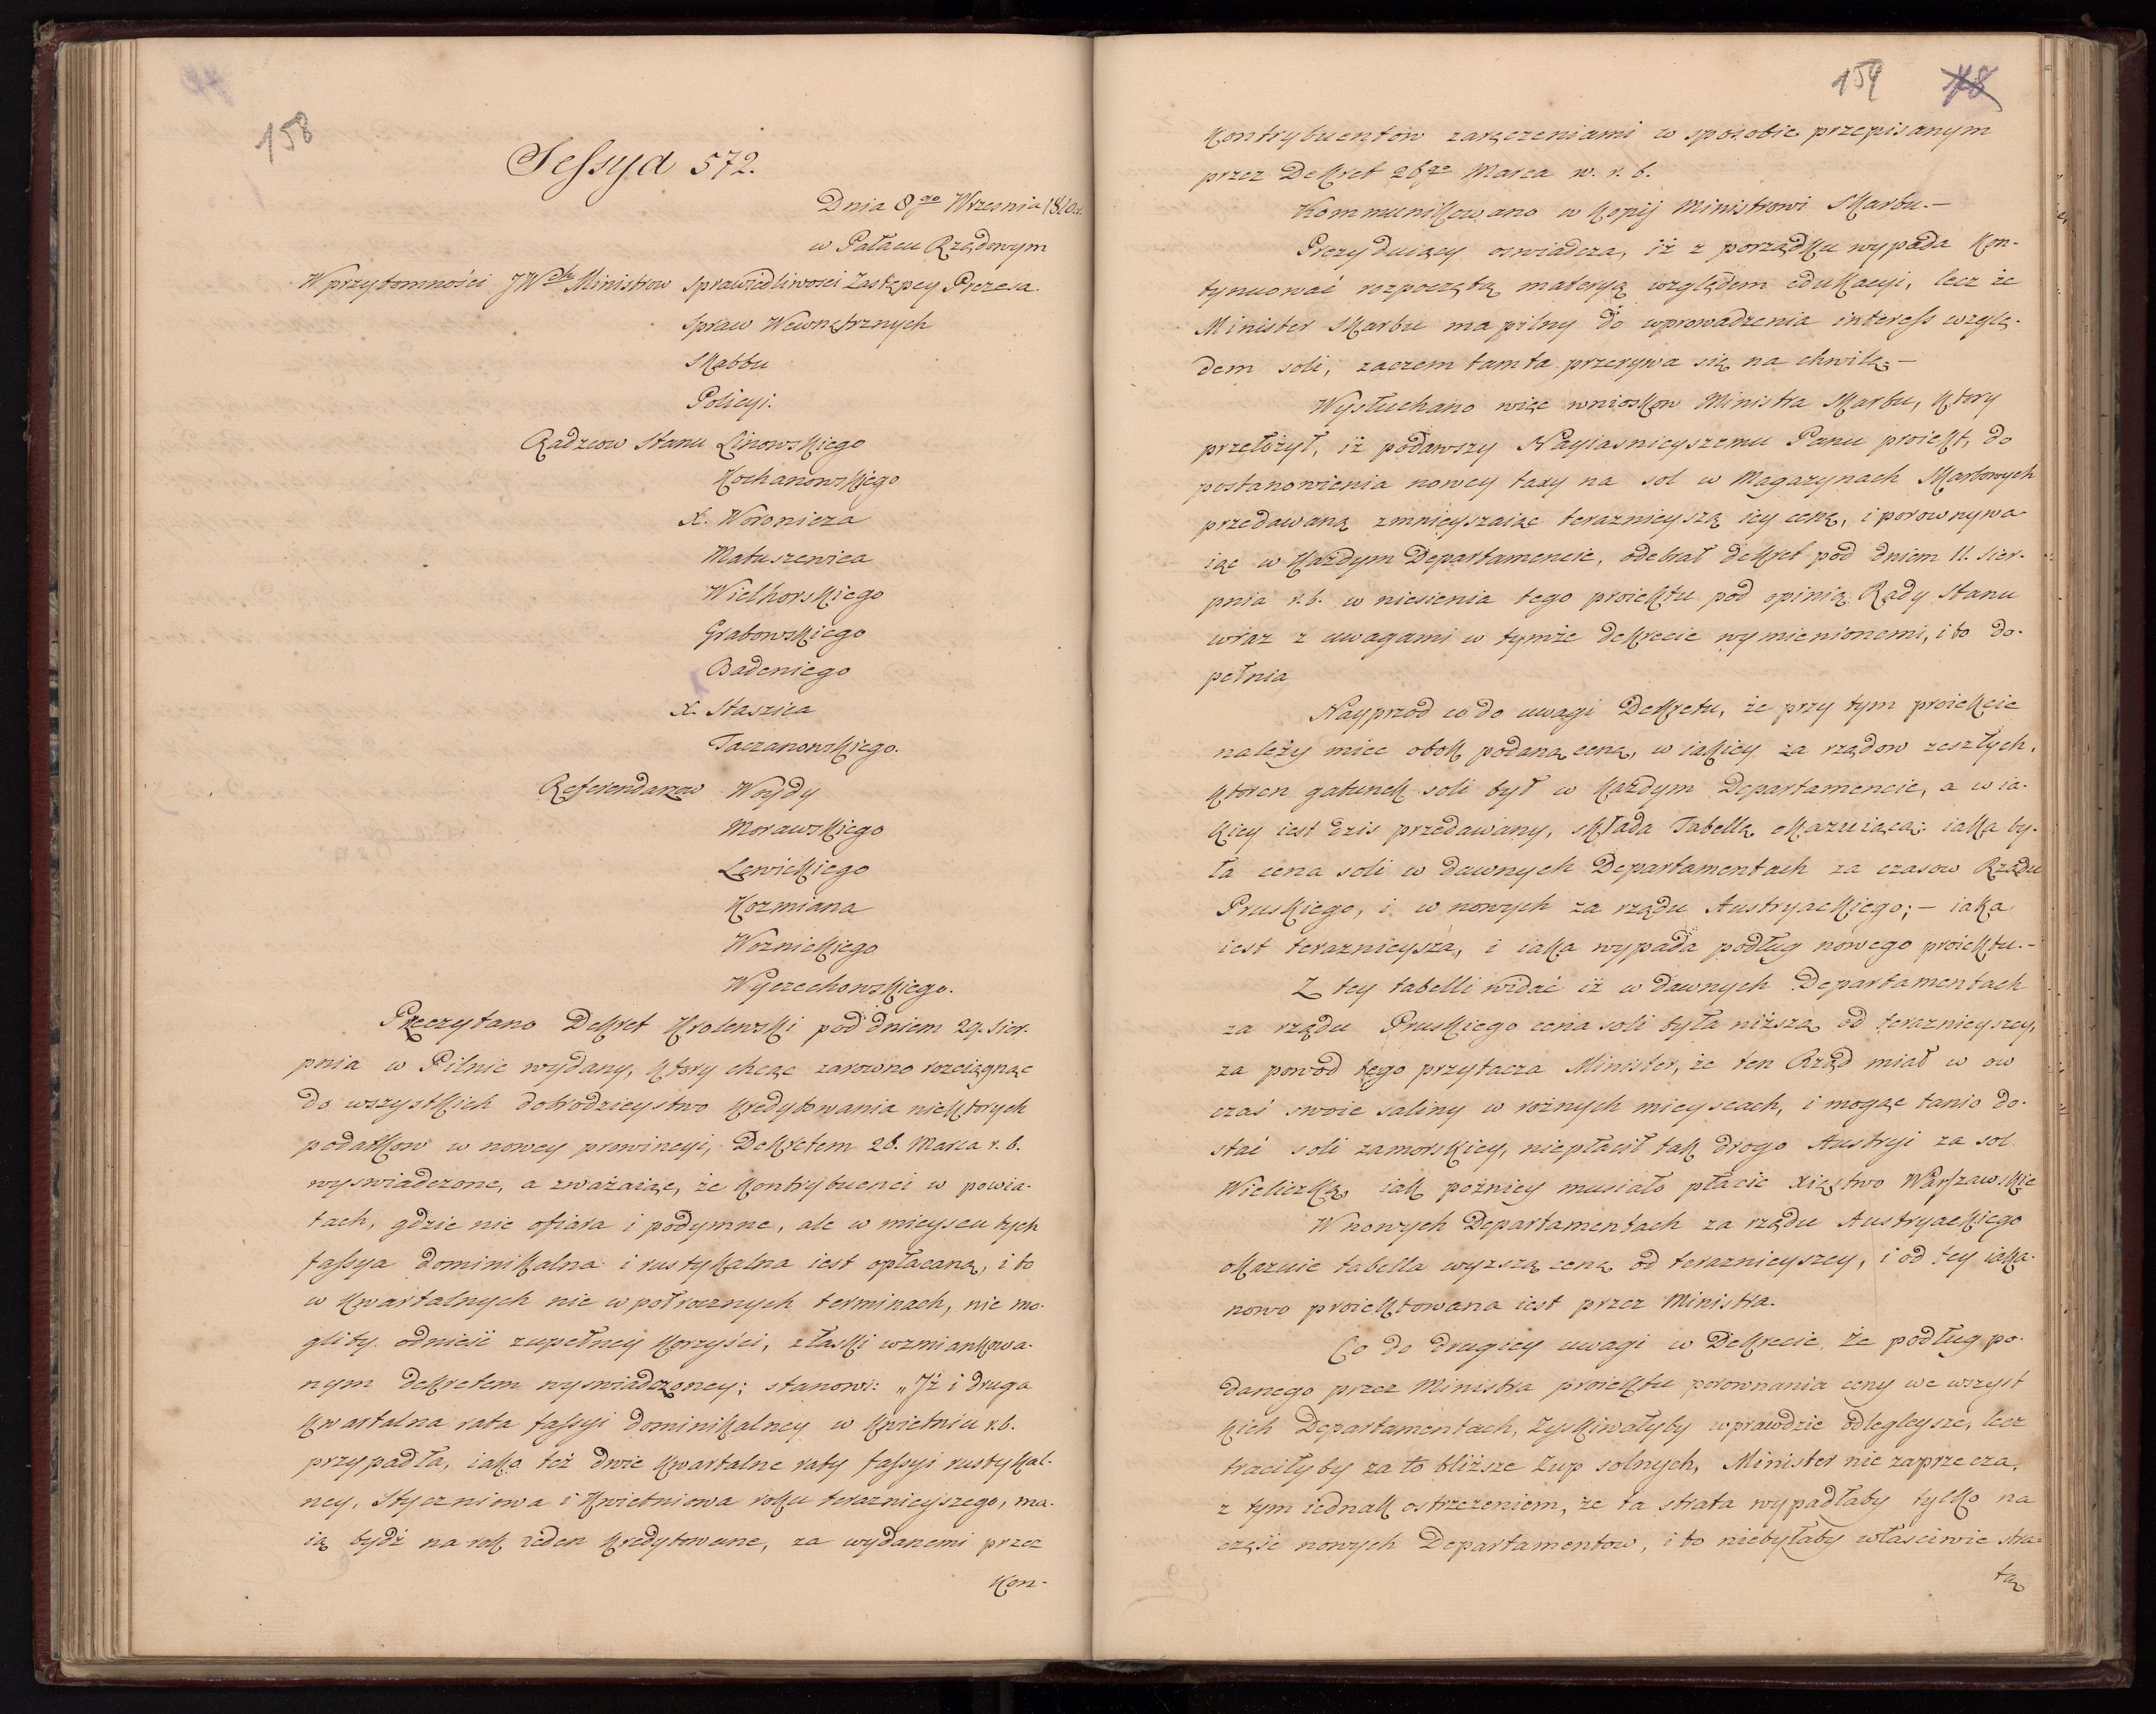 158
Sessya 572.
Dnia 8go Wrzesnia 1810.
w Pałacu Rządowym
W przytomności JWch Ministrow Sprawiedliwosci Zastępcy Prezesa.
Spraw Wewnętrznych
Skabbu
Policyi.
Radzcow Stanu Linowskiego
Kochanowskiego
X. Woronicza
Matuszewica
Wielhorskiego
Grabowskiego
Badeniego
X. Staszica
Taczanowskiego.
Referendarzow Woydy
Morawskiego
Lewickiego
Kozmiana
Woznickiego
Wyczechowskiego.
Przeczytano Dekret Krolewski pod dniem 29. Sier-
pnia w Pilnic wydany, ktory chcąc zarowno rozciągnąc
do wszystkich dobrodzieystwo kredytowania niektorych
podatkow w nowey prowincyi, Dekretem 26. Marca r. b.
wyswiadczone, a zwazaiąc, że kontrybuenci w powia-
tach, gdzie nie ofiara i podymne, ale w mieyscu tych
fassya dominikalna i rustykalna iest opłacaną, i to
w kwartalnych nie w połrocznych terminach, nie mo-
gliby odnieść zupełney korzyści, z łaski wzmiankowa-
nym dekretem wyswiadczoney; stanowi: „Iż i druga
kwartalna rata fassyi dominikalney w Kwietniu r.b.
przypadła, iako też dwie kwartalne raty fassyi rustykal-
ney, Styczniowa i Kwietniowa roku terazniejszego, ma-
ią bydź na rok ieden kredytowane, za wydanemi przez
Kon-
159 78
Kontrybuentow zaręczeniami w sposobie przepisanym
przez Dekret 26go Marca w. r. b.
Kommunikowano w kopij Ministrowi Skarbu.-
Prezyduiący oswiadcza, iż z porządku wypada kon-
tynuować rozpoczętą materyą względem edukacyi, lecz że
Minister Skarbu ma pilny do wprowadzenia interess wzglę-
dem soli, zaczem tamta przerywa się na chwilę.-
Wysłuchano więc wnioskow Ministra Skarbu, ktory
przełożył, iż podawszy Nayiasnieyszemu Panu proiekt, do
postanowienia nowey taxy na sol w Magazynach Skarbowych
przedawaną zmnieyszaiąc teraznieyszą iey cenę, i porownywa-
iąc w każdym Departamencie, odebrał dekret pod dniem 11. Sier-
pnia r.b. w niesienia tego proiektu pod opinią Rady Stanu
wraz z uwagami w tymże dekrecie wymienionemi, i to do-
pełnia
Nayprzod co do uwagi Dekretu, że przy tym proiekcie
należy miec obok podaną cenę, w iakiey za rządow zeszłych,
ktoren gatunek soli był w każdym Departamencie, a w ia-
kiey iest dzis przedawany, składa Tabellę okazuiącą: iaka by-
ła cena soli w dawnych Departamentach za czasow Rządu
Pruskiego, i w nowych za rządu Austryackiego;- iaka
iest teraznieysza, i iaka wypada podług nowego proiektu.-
Z tey tabelli widać iż w dawnych Departamentach
za rządu Pruskiego cena soli była niższa od teraznieyszey,
za powod tego przytacza Minister, że ten Rząd miał w ow
czas swoie saliny w rożnych mieyscach, i mogąc tanio do-
stać soli zamorskiey, niepłacił tak drogo Austryi za sol
Wieliczką iak pożniey musiało płacic Xięstwo Warszawskie
W nowych Departamentach za rządu Austryackiego
okazuie tabella wyzszą cenę od teraznieyszey, i od tey iaka
nowo proiektowana iest przez Ministra.
Co do drugiey uwagi w Dekrecie, że podług po-
danego przez Ministra proiektu porownania ceny we wszyst
kich Departamentach, zyskiwałyby wprawdzie odlegleysze, lecz
traciłyby za to bliższe Żup solnych, Minister nie zaprzecza,
z tym iednak ostrzeżeniem, że ta strata wypadłaby tylko na
część nowych Departamentow, i to niebyłaby własciwie stra-
tą